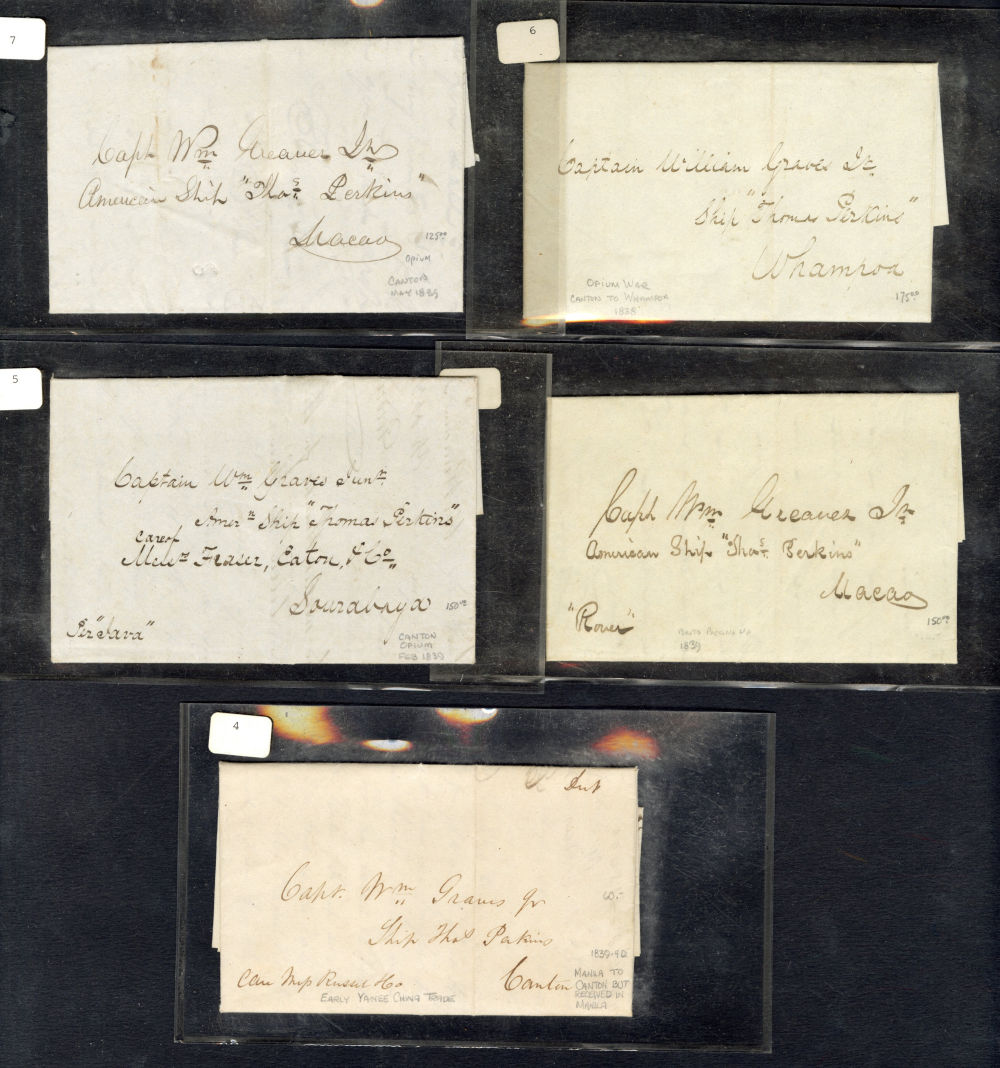 7
Capt Wm Greaves Jr
American Ship "Thos Perkins"
Macao
125.00
OPIUM
CANTON
MAY 1839
6
Captain William Graves Jr
Ship "Thomas Perkins"
Whampoa
OPIUM WAR
CANTON TO WHAMPOA
1838
175.00
5
Captain Wm Graves Junr
Amern Ship "Thomas Perkins"
care of
Messrs Fraser, Eaton, & Co
Sourabaya
150.00
Per "Java"
CANTON
OPIUM
FEB 1839
Capt Wm Greaves Jr
American Ship "Thos Perkins"
Macao
"Rover"
150.00
1839
4
Capt. Wm Graves Jr
Ship Thos Perkins
60.-
1839-40
Care Mess Russel & Co
Canton
EARLY YANEE CHINA TRADE
MANILA TO
CANTON BUT
RECEIVED IN
MANILA